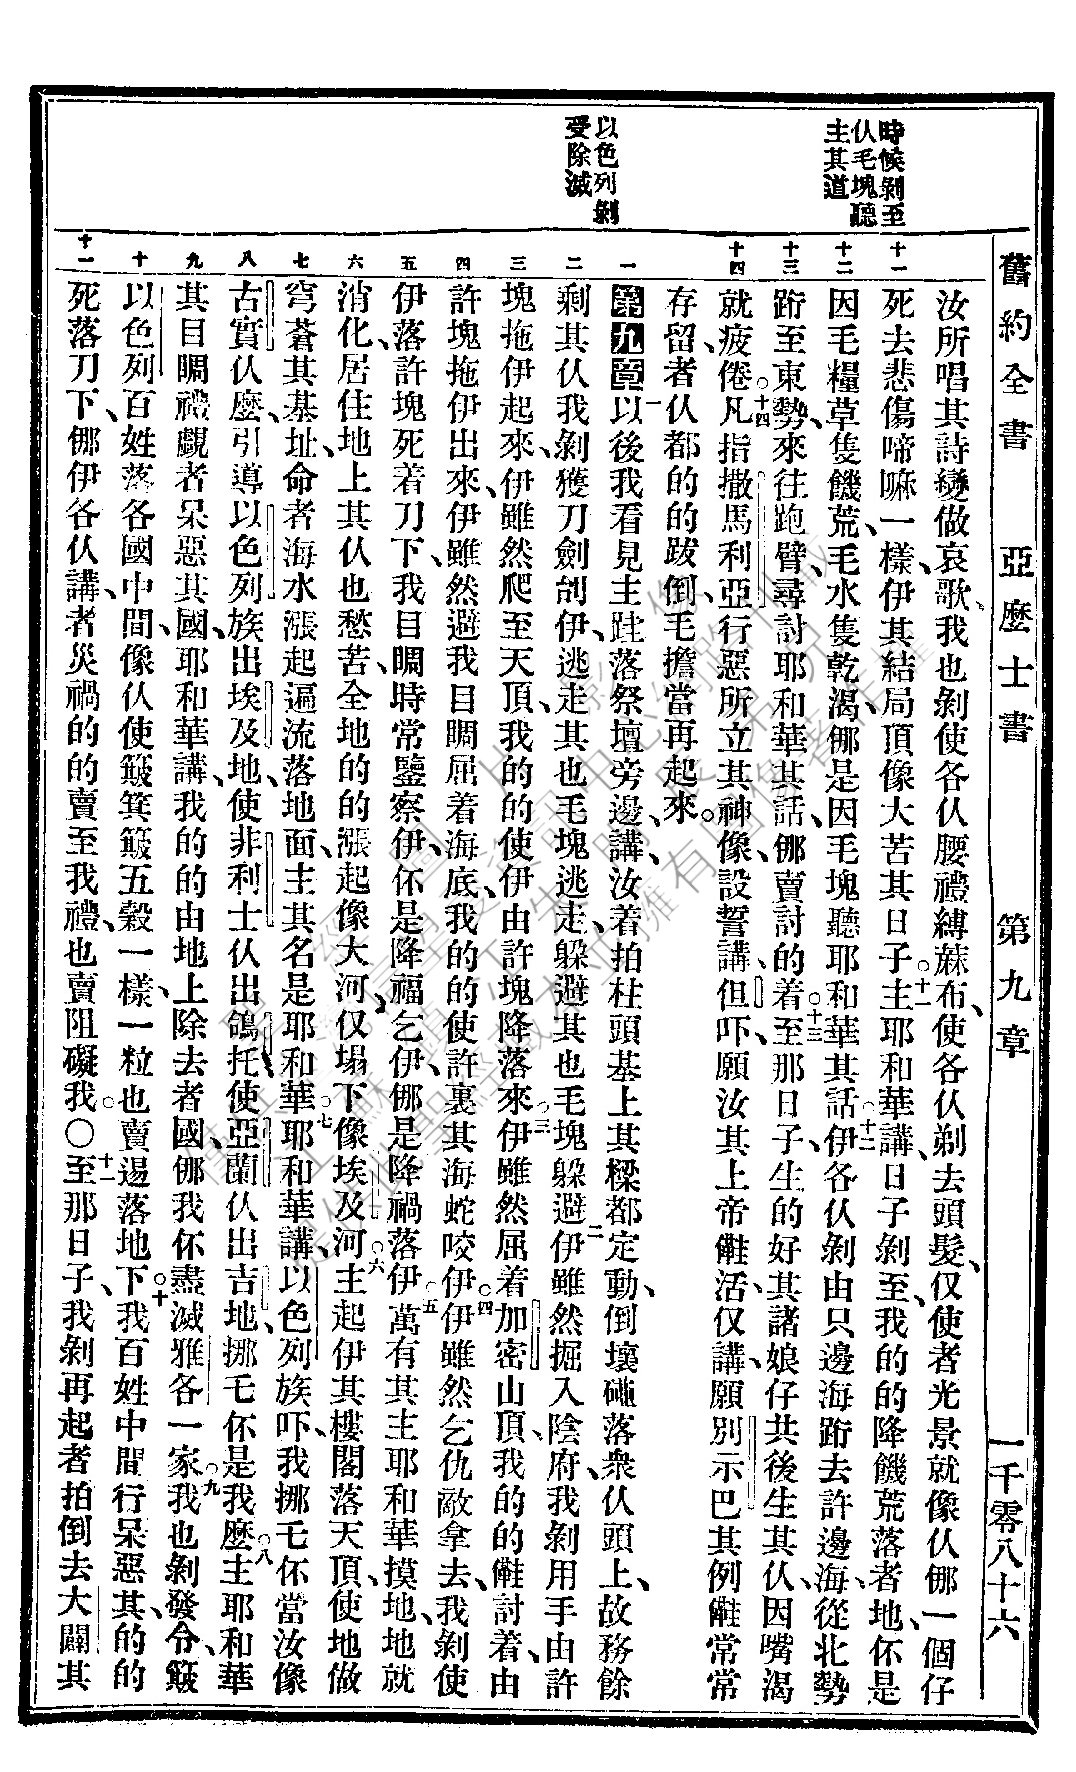 舊約全書 亞麼士書 第九章 一千零八十六
時候剝至
仈毛塊聽
主其道
以色列剝
受除滅
十一
十二
十三
十四
一
二
三
四
五
六
七
八
九
十
十一
汝所唱其詩變做哀歌、我也剝使各仈腰禮縛蔴布、使各仈剃去頭髮、仅使者光景就像仈㑚一個仔
死去悲傷啼嘛一樣、伊其結局頂像大苦其日子○十一主耶和華講、日子剝至、我的的降饑荒落者地、伓是
因毛糧草隻饑荒、毛水隻乾渴、㑚是因毛塊聽耶和華其話○十二伊各仈剝由只邊海跨去許邊海、從北勢
跨至東勢、來往跑臂、尋討耶和華其話、㑚賣討的着○十三至那日子、生的好其諸娘仔共後生其仈、因嘴渴
就疲倦○十四凡指撒馬利亞行惡所立其神像設誓講、但吓、願汝其上帝㒳活、仅講、願別示巴其例㒳常常
存留、者仈都的的跋倒、毛擔當再起來。
第九章 一以後我看見主跬落祭壇旁邊、講、汝着拍柱頭基上其樑都定動、倒壞磕落衆仈頭上、故務餘
剩其仈我剝獲刀劍刣伊、逃走其也毛塊逃走、躲避其也毛塊躲避○二伊雖然掘入陰府、我剝用手由許
塊拖伊起來、伊雖然爬至天頂、我的的使伊由許塊降落來○三伊雖然屈着加密山頂、我的的㒳討着、由
許塊拖伊出來、伊雖然避我目瞯屈着海底、我的的使許裏其海蛇咬伊○四伊雖然乞仇敵拿去、我剝使
伊落許塊死着刀下、我目瞯時常鑒察伊、伓是降福乞伊、㑚是降禍落伊○五萬有其主耶和華摸地、地就
消化、居住地上其仈也愁苦、全地的的漲起像大河、仅塌下像埃及河○六主起伊其樓閣落天頂、使地做
穹蒼其基址、命者海水漲起遍流落地面、主其名是耶和華○七耶和華講、以色列族吓、我挪乇伓當汝像
古實仈麼、引導以色列族出埃及地、使非利士仈出鴿托、使亞蘭仈出吉地、挪乇伓是我麼○八主耶和華
其目瞯禮覷者呆惡其國、耶和華講、我的的由地上除去者國、㑚我伓盡滅雅各一家○九我也剝發令、簸
以色列百姓落各國中間、像仈使簸箕簸五穀一樣、一粒也賣逿落地下○十我百姓中間行呆惡其、的的
死落刀下、㑚伊各仈講、者災禍的的賣至我禮、也賣阻礙我○〇十一至那日子、我剝再起者拍倒去大闢其